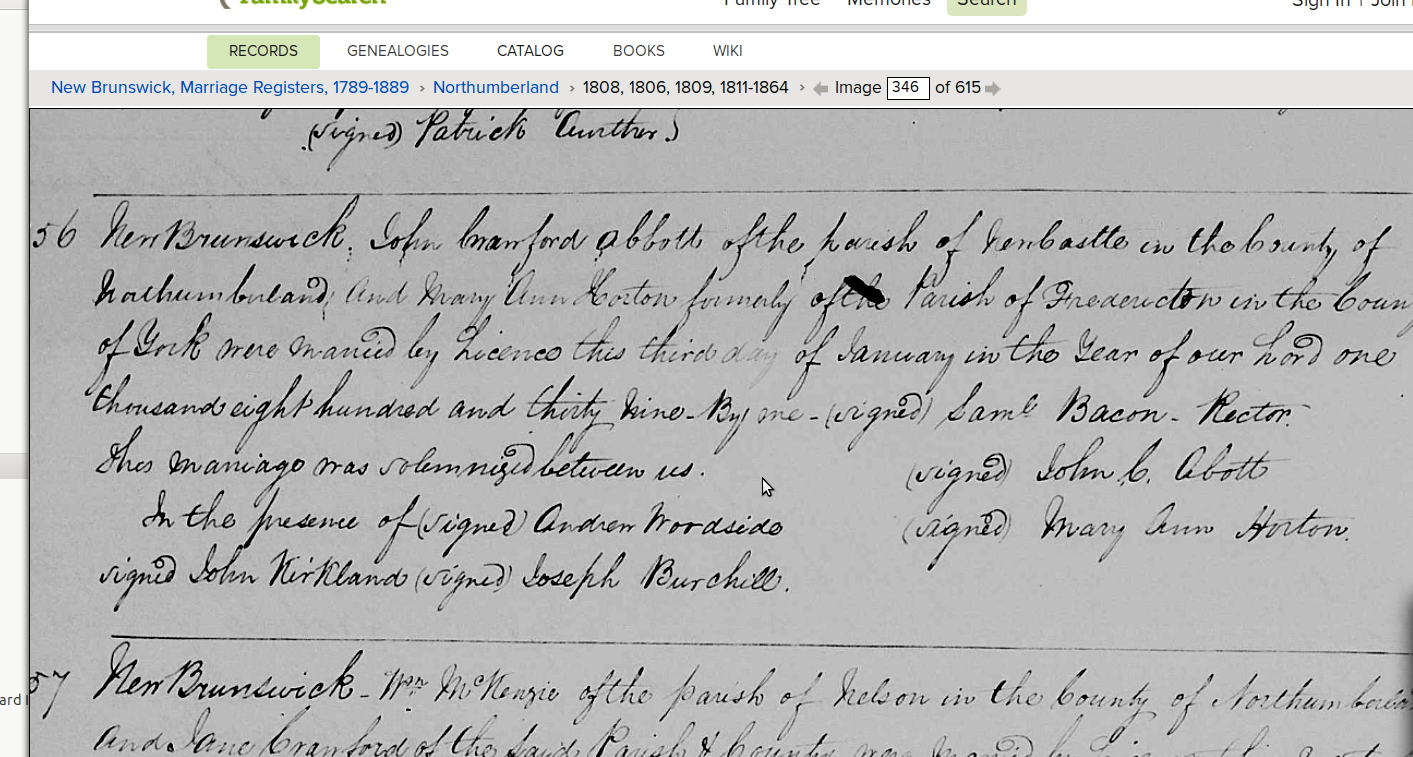 FamilySearch Family Tree Memories Search Sign In Join
RECORDS GENEALOGIES CATALOG BOOKS WIKI
New Brunswick, Marriage Registers, 1789-1889 › Northumberland › 1808, 1806, 1809, 1811-1864 › Image 346 of 615
(signed) Patrick
56 New Brunswick. John Crawford Abbott of the parish of Newcastle in the County of
Northumberland, And Mary Ann Horton formerly of the Parish of Fredericton in the Coun
of York were married by Licence this third day of January in the Year of our Lord one
thousand eight hundred and thirty Nine - By me - (signed) Saml Bacon - Rector.
This Marriage was solemnized between us. (signed) John C. Abott
In the presence of (signed) Andrew Woodside (signed) Mary Ann Horton.
signed John Kirkland (signed) Joseph Burchill.
57 New Brunswick - Wm McKenzie of the parish of Nelson in the County of Northumberla
ard
And Jane Crawford of the said Parish & County were married by